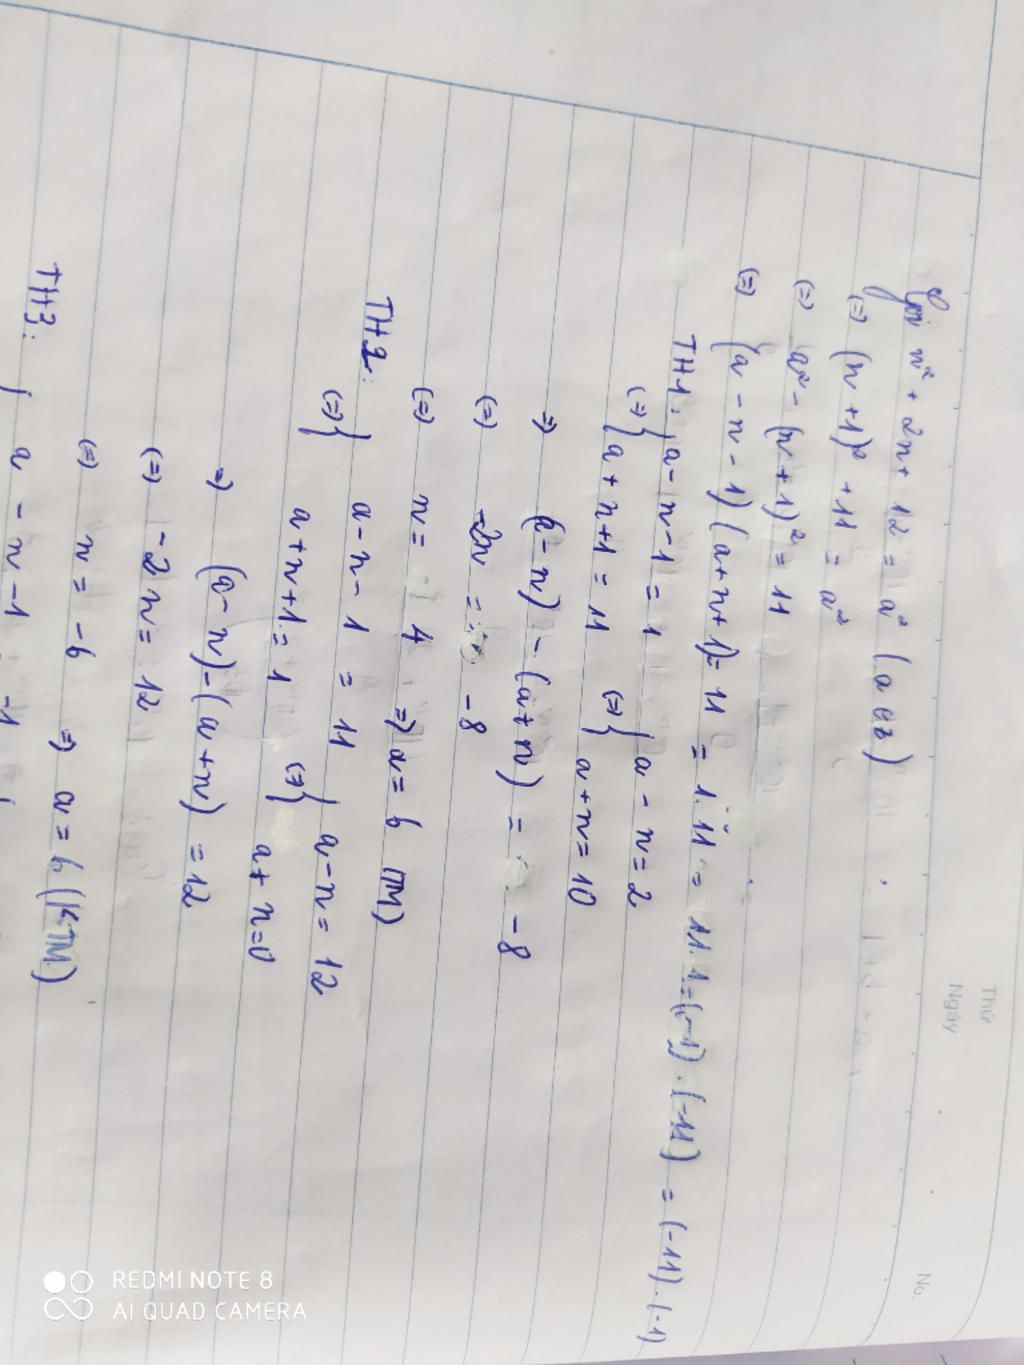 Thứ
Ngày
No.
Gọi n² + 2n + 12 = a² (a ∈ Z)
(=) (n + 1)² + 11 = a²
(=) a² - (n + 1)² = 11
(=) (a - n - 1)(a + n + 1) = 11 = 1.11 = 11.1 = (-1).(-11) = (-11).(-1)
TH1: { a - n - 1 = 1 (=) { a - n = 2
(=) { a + n + 1 = 11 { a + n = 10
=) (a - n) - (a + n) = -8
(=) -2n = -8
(=) n = 4 =) a = 6 (TM)
TH2: (=) { a - n - 1 = 11 (=) { a - n = 12
a + n + 1 = 1 a + n = 0
=) (a - n) - (a + n) = 12
(=) -2n = 12
(=) n = -6 =) a = 6 (KTM)
TH3: { a - n - 1 = -1
REDMI NOTE 8
AI QUAD CAMERA